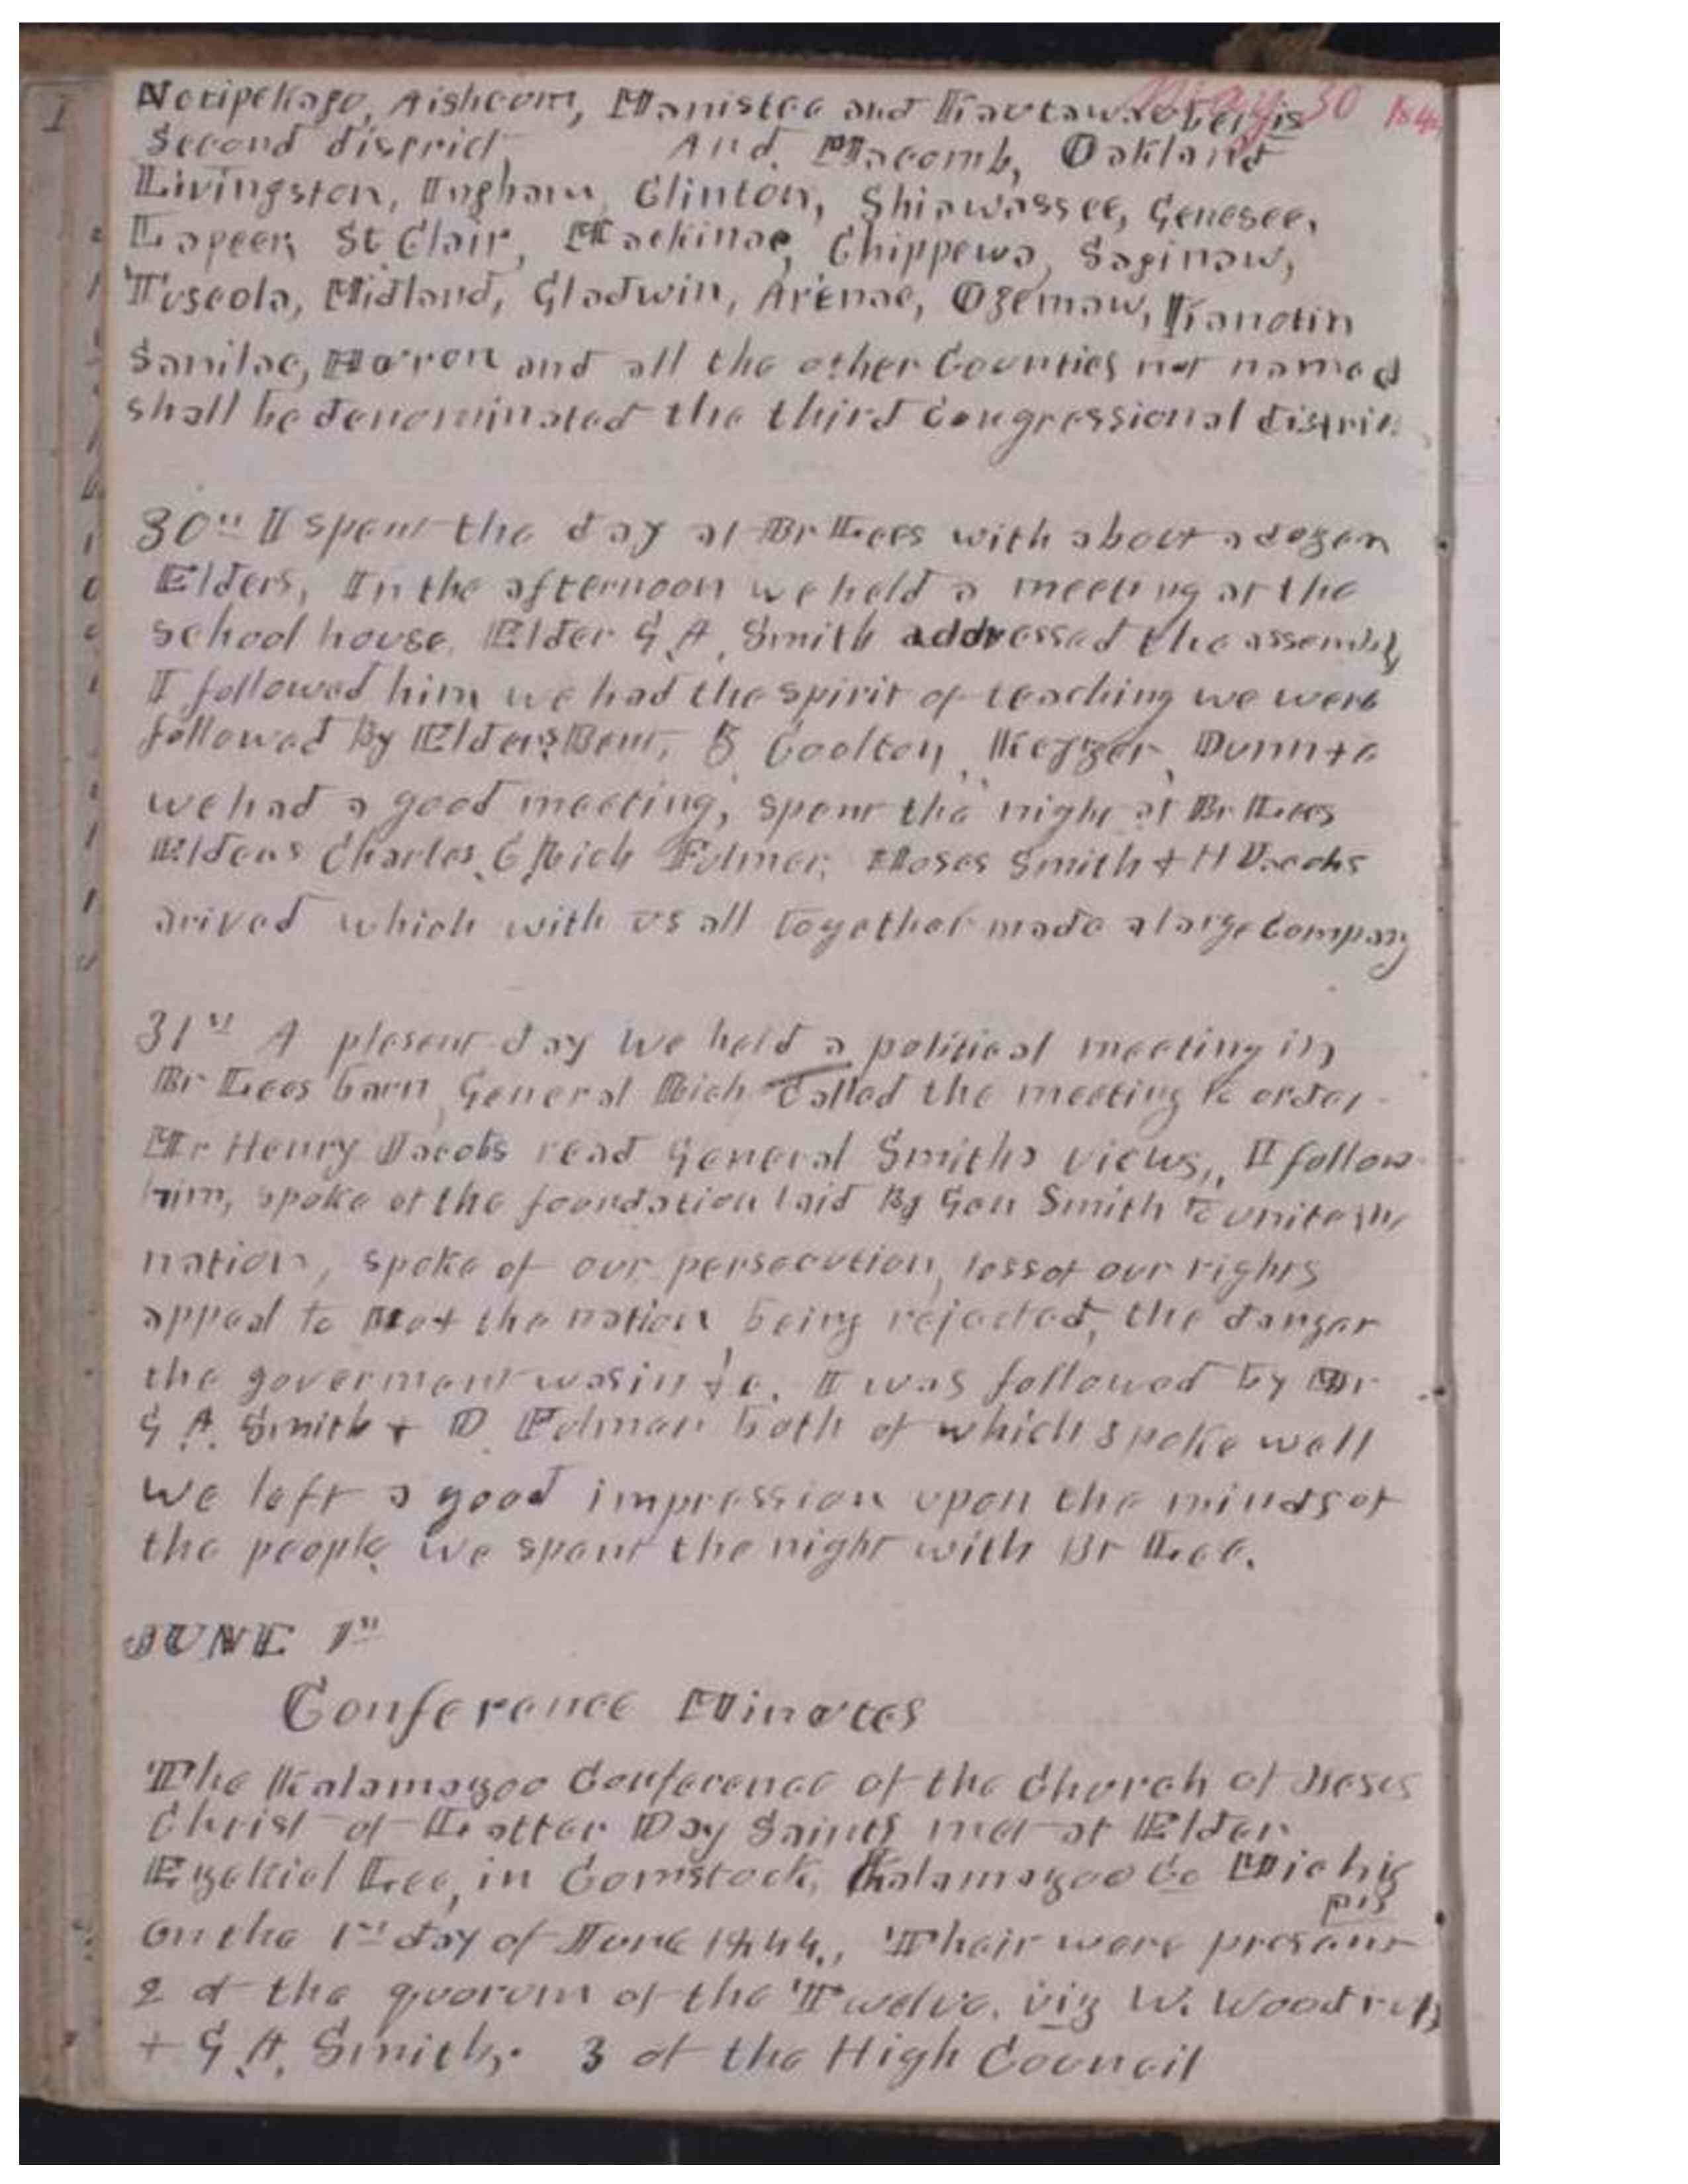 May 30 1844
Notipekago, Aishcom, Manistee and Kautawaubet is
Second district And Macomb, Oakland
Livingston, Ingham, Clinton, Shiawassee, Genesee,
Lapeer, St Clair, Mackinac, Chippewa, Saginaw,
Tuscola, Midland, Gladwin, Arenac, Ogemaw, Kanotin
Sanilac, Huron and all the other Counties not named
shall be denominated the third Congressional district
30th I spent the day at Br Lees with about a dozen
Elders, In the afternoon we held a meeting at the
school house, Elder G. A. Smith addressed the assembly
I followed him we had the spirit of teaching we were
followed By Elders Bent, G Coolton, Keyzer, Dunn +c
we had a good meeting, spent the night at Br Lees
Elders Charles, C Rich Fulmer, Moses Smith + H Jacobs
arived which with us all together made a large Company
31st A plesent day We held a political meeting in
Br Lees barn, General Rich Called the meeting to order
Mr Henry Jacobs read General Smiths views,, I follow
him, spoke of the foundation laid By Gen Smith to unite the
nation, spoke of our persecution, loss of our rights
appeal to the nation being rejected, the danger
the goverment was in +c. I was followed by Br
G. A. Smith + D. Fulmer both of which spoke well
we left a good impression upon the minds of
the people, we spent the night with Br Lee.
JUNE 1st
Conference Minutes
The Kalamazoo Conference of the Church of Jesus
Christ of Latter Day Saints met at Elder
Ezekiel Lee, in Comstock, Kalamazoo Co Michig
on the 1st day of June 1844., Their were present
2 of the quorum of the Twelve, viz W. Woodruff
+ G. A. Smith,. 3 of the High Council